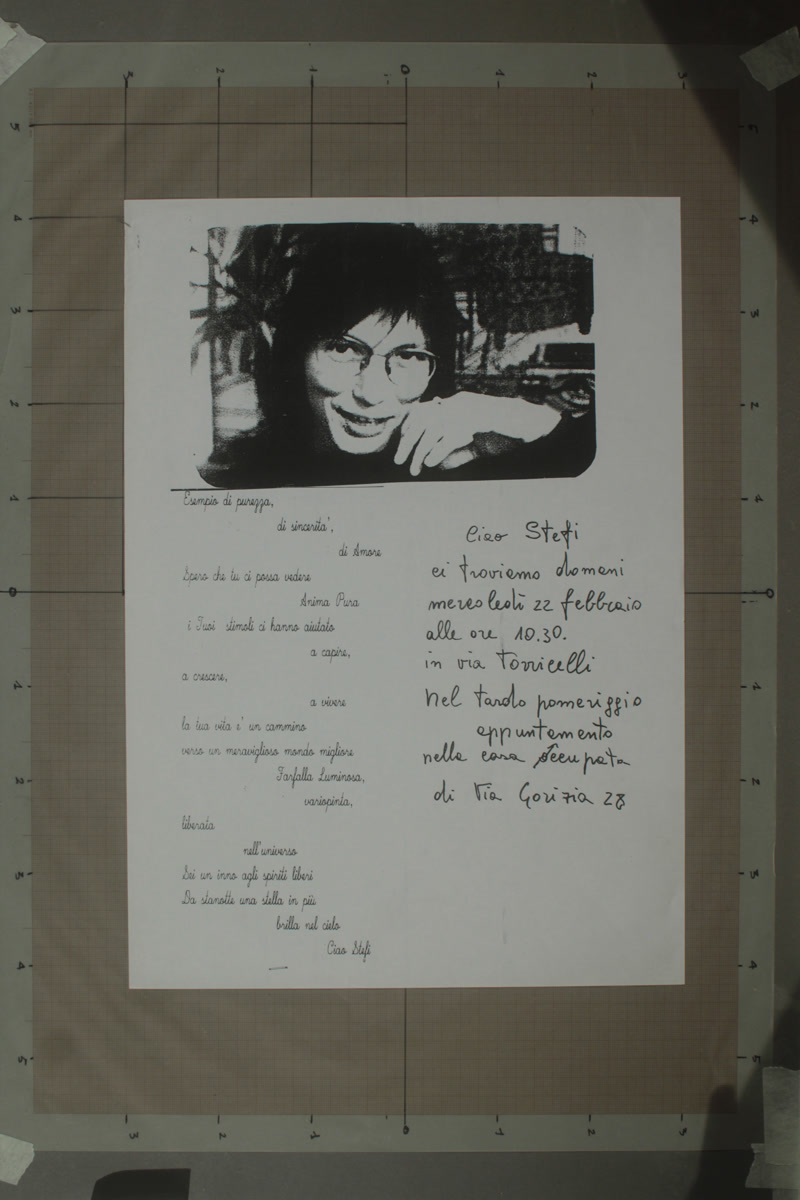 Esempio di purezza,
di sincerita',
di Amore
Spero che tu ci possa vedere
Anima Pura
i Tuoi stimoli ci hanno aiutato
a capire,
a crescere,
a vivere
la tua vita e' un cammino
verso un meraviglioso mondo migliore
Farfalla Luminosa,
variopinta,
liberata
nell'universo
Sei un inno agli spiriti liberi
Da stanotte una stella in più
brilla nel cielo
Ciao Stefi
Ciao Stefi
ci troviamo domani
mercoledì 22 febbraio
alle ore 10.30.
in via Torricelli
Nel tardo pomeriggio
appuntamento
nella casa occupata
di Via Gorizia 28